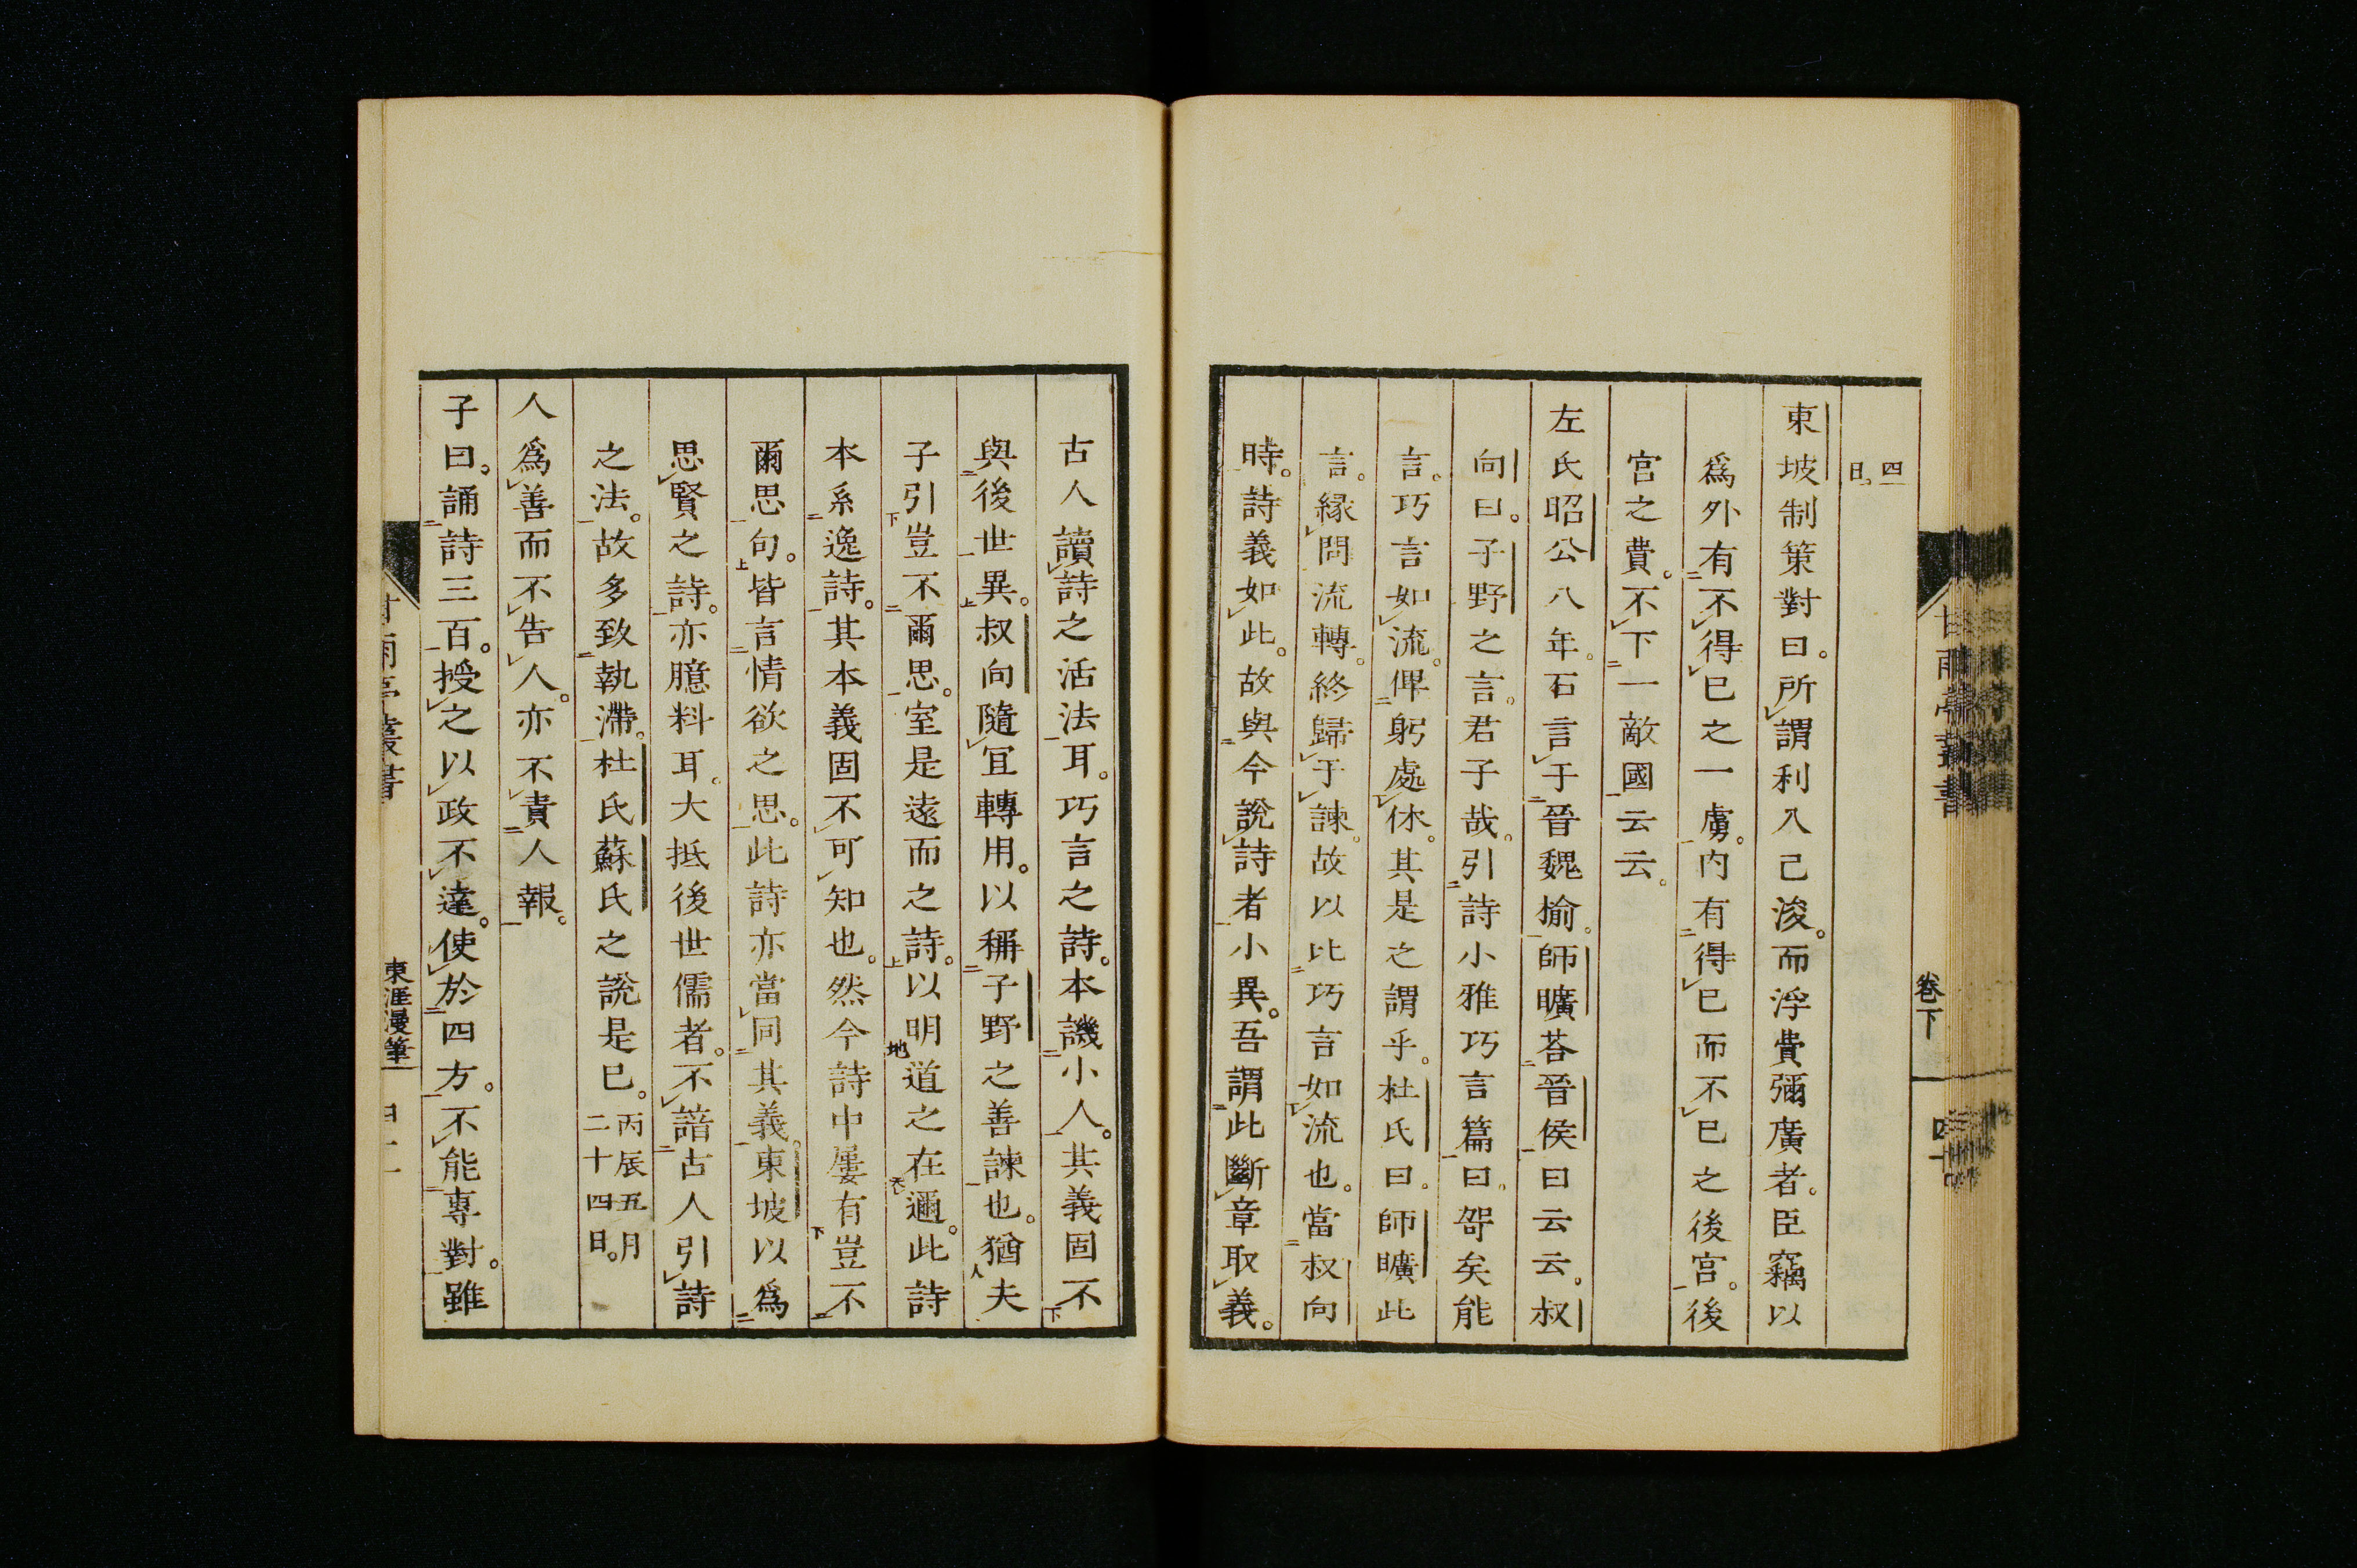 四
日。
東坡制策對曰。所謂利入已浚。而浮費彌廣者。臣竊以
爲外有不得已之一虜。内有得已而不已之後宮。後
宮之費。不下一敵國云云。
左氏昭公八年。石言于晉魏榆。師曠荅晉侯曰云云。叔
向曰。子野之言。君子哉。引詩小雅巧言篇曰。哿矣能
言。巧言如流。俾躬處休。其是之謂乎。杜氏曰。師曠此
言。縁問流轉。終歸于諫。故以比巧言如流也。當叔向
時。詩義如此。故與今說詩者小異。吾謂此斷章取義。
甘雨亭叢書
卷下
四十一
古人讀詩之活法耳。巧言之詩。本譏小人。其義固不
與後世異。叔向隨宜轉用。以稱子野之善諫也。猶夫
子引豈不爾思。室是遠而之詩。以明道之在邇。此詩
本系逸詩。其本義固不可知也。然今詩中屢有豈不
爾思句。皆言情欲之思。此詩亦當同其義。東坡以爲
思賢之詩。亦臆料耳。大抵後世儒者。不諳古人引詩
之法。故多致執滯。杜氏蘇氏之說是已。丙辰五月
二十四日。
人爲善而不告人。亦不責人報。
子曰。誦詩三百。授之以政不達。使於四方。不能專對。雖
甘雨亭叢書
東涯漫筆